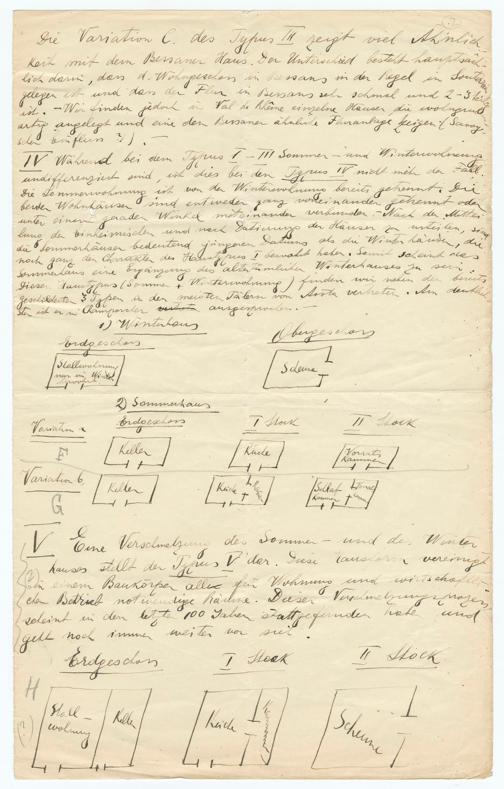 Die Variation C. des Typus III zeigt viel Ähnlich-
keit mit dem Bessaner Haus. Der Unterschied besteht hauptsäch-
lich darin, dass d. Wohngeschoss in Bessans in der Regel in Souterrain
gelegen ist und dass der Flur in Bessans sehr schmal und 2-3
ist. - Wir finden jedoch in Val de Rhême einzelne Häuser, die
artig angelegt und eine dem Bessaner ähnliche Fluranlage zeigen (Savoy-
scher Einfluss?). -
IV Während bei dem Typus I - III Sommer- und Winterwohnung
undifferenziert sind, ist dies bei dem Typus IV nicht mehr der Fall.
Die Sommerwohnung ist von der Winterwohnung bereits getrennt. Die
beiden Wohnhäuser sind entweder ganz voneinander getrennt oder
unter einem geraden Winkel miteinander verbunden. - Nach der Mittei-
lung der Einheimischen und nach Datierung der Häuser zu urteilen, sind
die Sommerhäuser bedeutend jüngeren Datums als die Winterhäuser, die
noch ganz den Charakter des Haustypus I bewahrt haben. Somit scheint das
Sommerhaus eine Ergänzung des altertümlichen Winterhauses zu sein.
Diesen Haustypus (Sommer u. Winterwohnung) finden wir neben den bereits
geschilderten 3 Typen in den meisten Tälern von Aosta vertreten. Am deutlich-
sten ist er in Champorcher ausgesprochen. -
1) Winterhaus
Erdgeschoss Obergeschoss
Stallwohnung
nur im Winter
bewohnt
Scheune
2) Sommerhaus
Variation a Erdgeschoss I Stock II Stock
F Keller Küche Vorrats
kammer
Variation b.
G Keller Küche Schlaf
kammer
V Eine Verschmelzung des Sommer- und des Winter
hauses stellt der Typus V dar. Diese Hausform vereinigt
in einem Baukörper alle zur Wohnung und wirtschaftli-
chen Betrieb notwendige Räume. Dieser Vereinheitlichungsprozess
scheint in den letzte 100 Jahren stattgefunden habe und
geht noch immer weiter vor sich.
Erdgeschoss I Stock II Stock
H
(?)
Stall-
wohnung Keller Küche Scheune